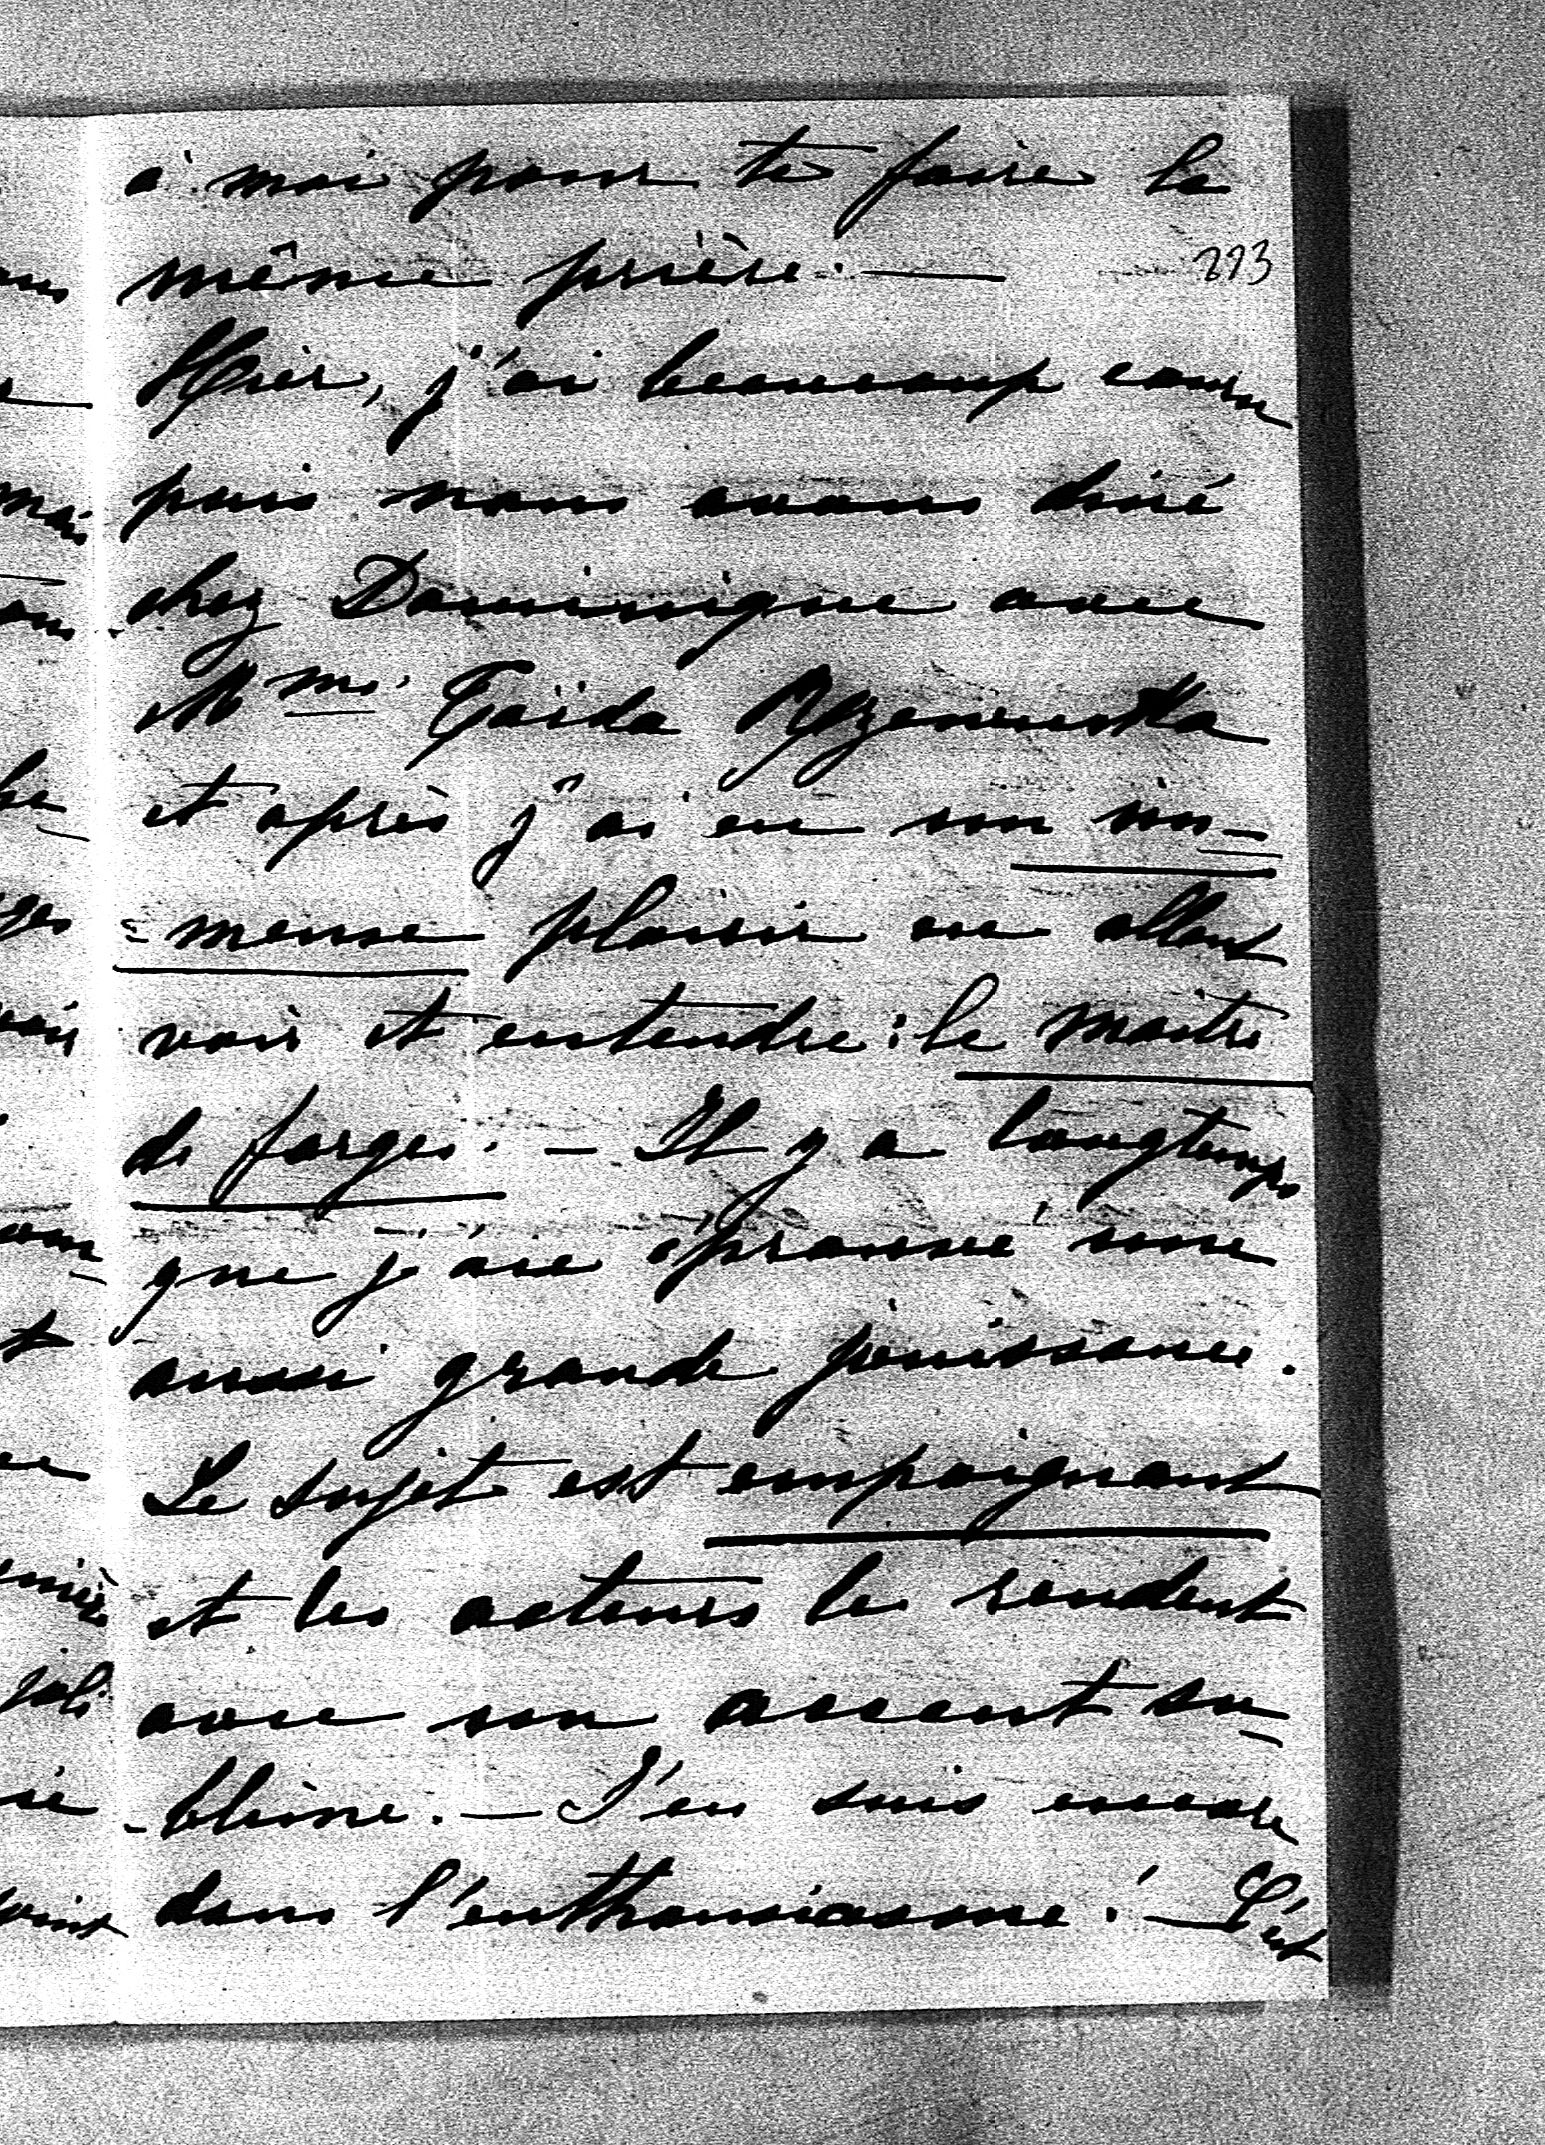 à moi pour te faire la
même prière. —
293
Hier, j'ai beaucoup couru
puis nous avons dîné
chez Dominique avec
Mme
et après j'ai eu un im-
-mense plaisir en allant
voir et entendre : le maître
de forges. — Il y a longtemps
que j'aie éprouvé une
aussi grande jouissance.
Le sujet est empoignant
et les acteurs le rendent
avec un accent su-
-blime. — J'en suis encore
dans l'enthousiasme. — C'est